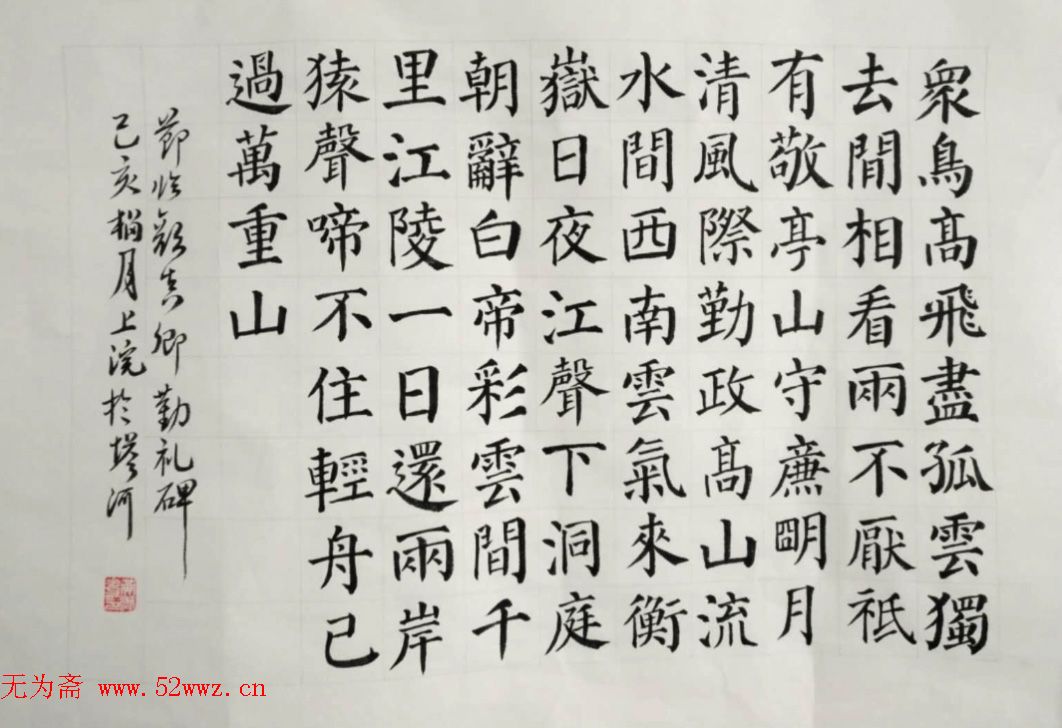 衆鳥髙飛盡孤雲獨
去閒相看兩不厭祗
有敬亭山守廉朙月
清風際勤政髙山流
水間西南雲氣來衡
嶽日夜江聲下洞庭
朝辭白帝彩雲間千
里江陵一日還兩岸
猿聲啼不住輕舟已
過萬重山
節临顔真卿勤礼碑
己亥榴月上浣於塔河
无为斋 www.52wwz.cn